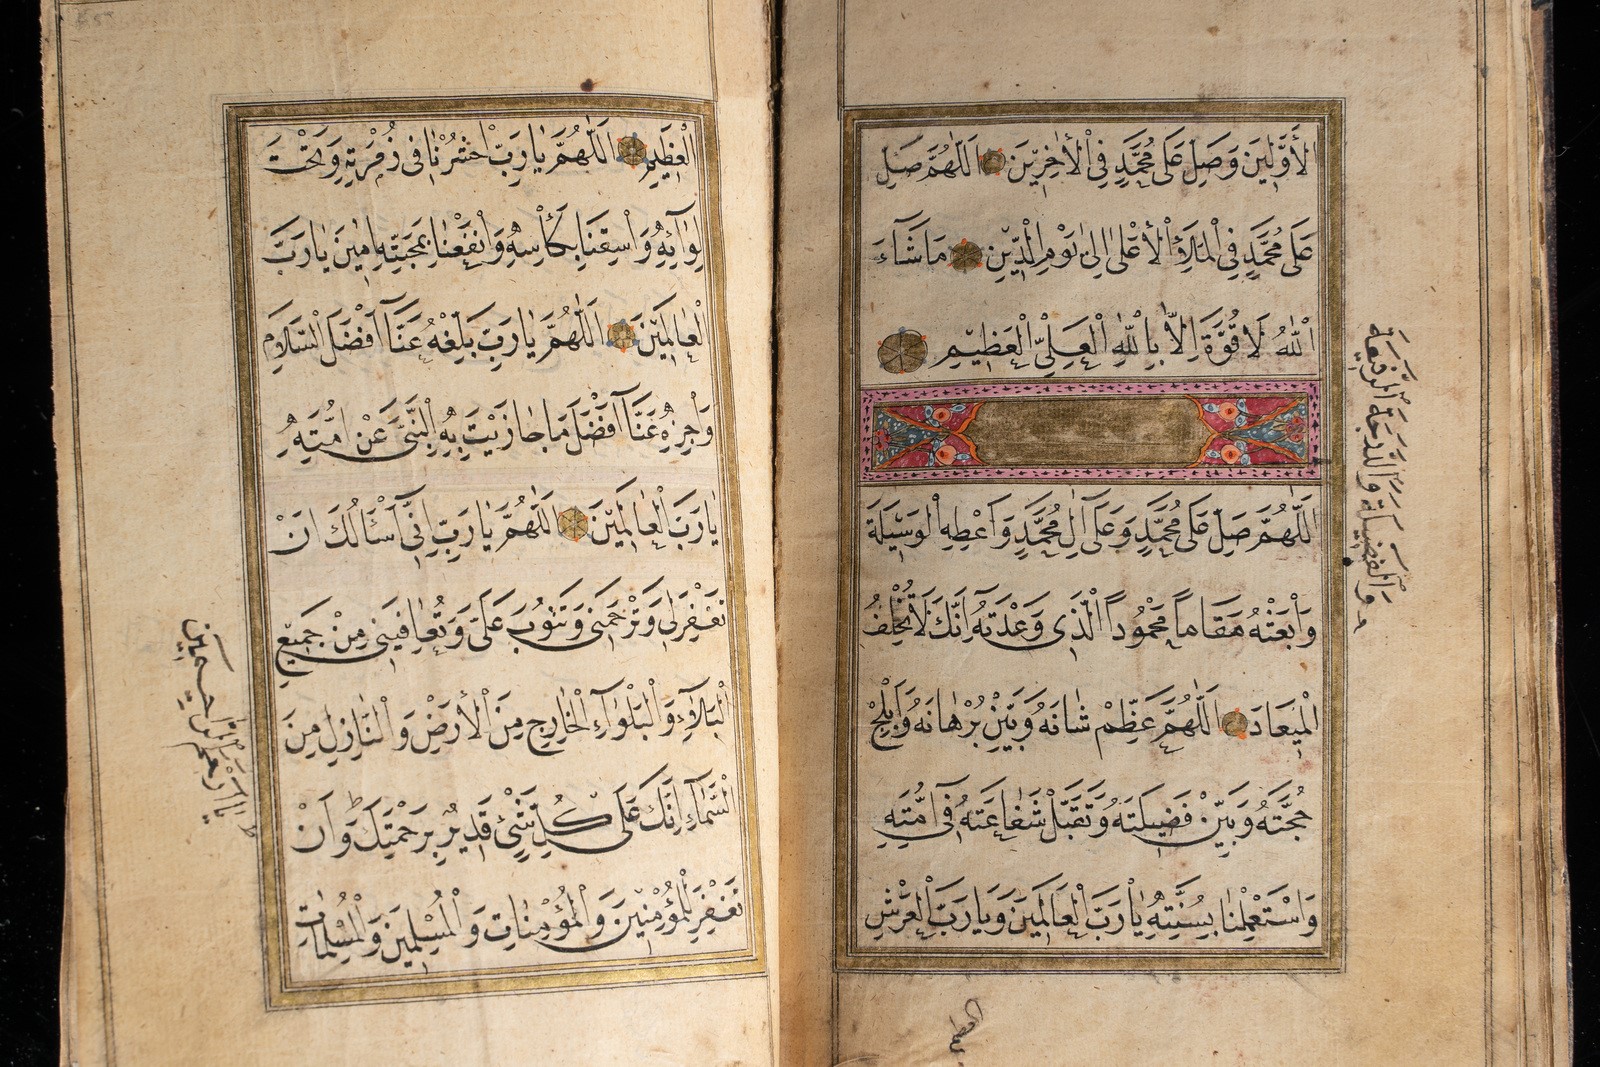 الْأَوَّلِينَ وَصَلِّ عَلَى مُحَمَّدٍ فِي الْأٰخِرِينَ اَللّٰهُمَّ صَلِّ
عَلَى مُحَمَّدٍ فِي الْمَلَإِ الْأَعْلٰى إِلٰى يَوْمِ الدِّينِ مَا شَاءَ
اللّٰهُ لَا قُوَّةَ اِلَّا بِاللّٰهِ الْعَلِيِّ الْعَظِيمِ
اَللّٰهُمَّ صَلِّ عَلَى مُحَمَّدٍ وَعَلَى آلِ مُحَمَّدٍ وَاَعْطِهِ الْوَسِيلَةَ
وَابْعَثْهُ مَقَامًا مَحْمُودًا الَّذِي وَعَدْتَهُ اِنَّكَ لَا تُخْلِفُ
الْمِيعَادَ اَللّٰهُمَّ عَظِّمْ شَانَهُ وَبَيِّنْ بُرْهَانَهُ وَاَبْلِجْ
حُجَّتَهُ وَبَيِّنْ فَضِيلَتَهُ وَتَقَبَّلْ شَفَاعَتَهُ فِي اُمَّتِهِ
وَاسْتَعْمِلْنَا بِسُنَّتِهِ يَا رَبَّ الْعَالَمِينَ وَيَا رَبَّ الْعَرْشِ
وَالْفَضِيلَةَ وَالدَّرَجَةَ الرَّفِيعَةَ
العظيم
الْعَظِيمِ اَللّٰهُمَّ يَا رَبِّ احْشُرْنَا فِي زُمْرَتِهِ وَتَحْتَ
لِوَائِهِ وَاسْقِنَا بِكَأْسِهِ وَانْفَعْنَا بِمَحَبَّتِهِ اٰمِينَ يَا رَبَّ
الْعَالَمِينَ اَللّٰهُمَّ يَا رَبِّ بَلِّغْهُ عَنَّا اَفْضَلَ السَّلَامِ
وَاجْزِهِ عَنَّا اَفْضَلَ مَا جَازَيْتَ بِهِ النَّبِيَّ عَنْ اُمَّتِهِ
يَا رَبَّ الْعَالَمِينَ اَللّٰهُمَّ يَا رَبِّ اِنِّي اَسْأَلُكَ اَنْ
تَغْفِرَ لِي وَتَرْحَمَنِي وَتَتُوبَ عَلَيَّ وَتُعَافِيَنِي مِنْ جَمِيعِ
الْبَلَاءِ وَالْبَلْوَاءِ الْخَارِجِ مِنَ الْأَرْضِ وَالنَّازِلِ مِنَ
السَّمَاءِ اِنَّكَ عَلَى كُلِّ شَيْءٍ قَدِيرٌ بِرَحْمَتِكَ وَاَنْ
تَغْفِرَ لِلْمُؤْمِنِينَ وَالْمُؤْمِنَاتِ وَالْمُسْلِمِينَ وَالْمُسْلِمَاتِ
يَا اَرْحَمَ الرَّاحِمِينَ